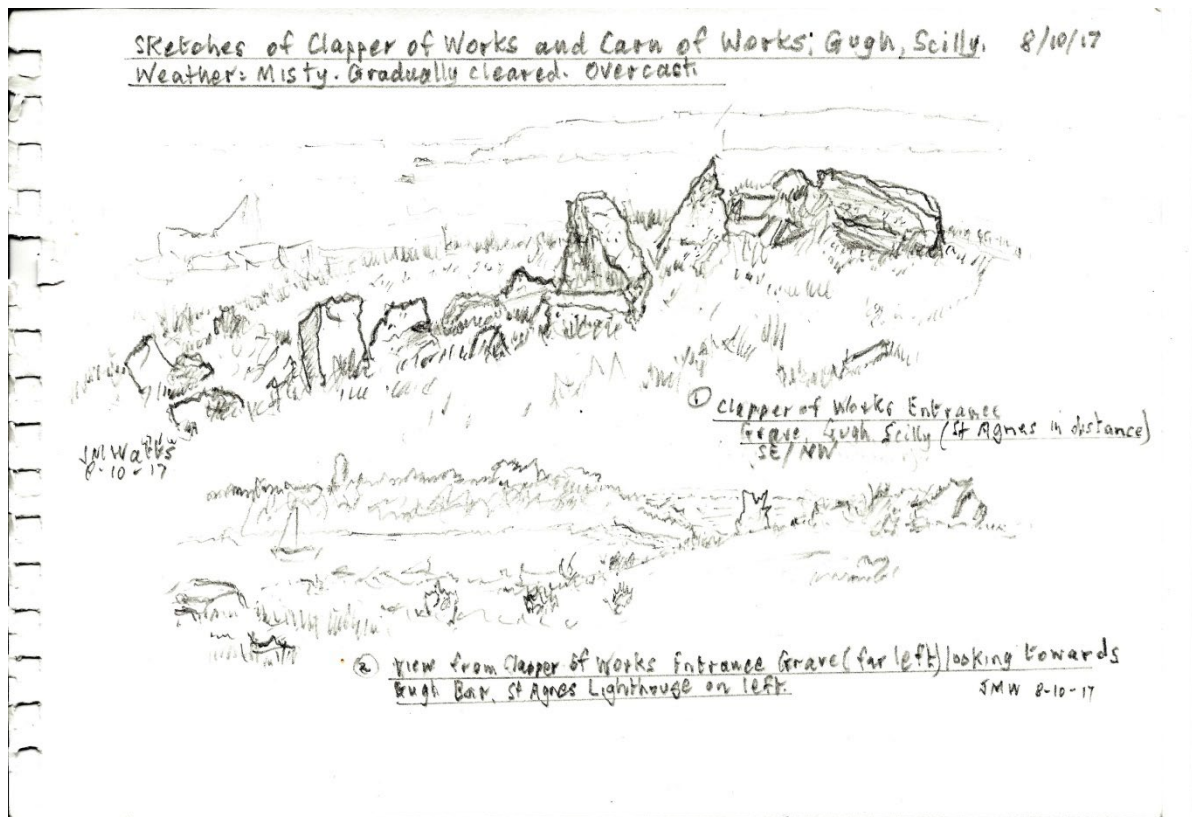 Sketches of Clapper of Works and Carn of Works; Gugh, Scilly. 8/10/17
Weather: Misty. Gradually cleared. Overcast.
① Clapper of Works Entrance
Grave, Gugh Scilly (St Agnes in distance)
SE/NW
J.M Watts
8-10-17
② View from Clapper of Works Entrance Grave (far left) looking towards
Gugh Bar, St Agnes Lighthouse on left.
JMW 8-10-17